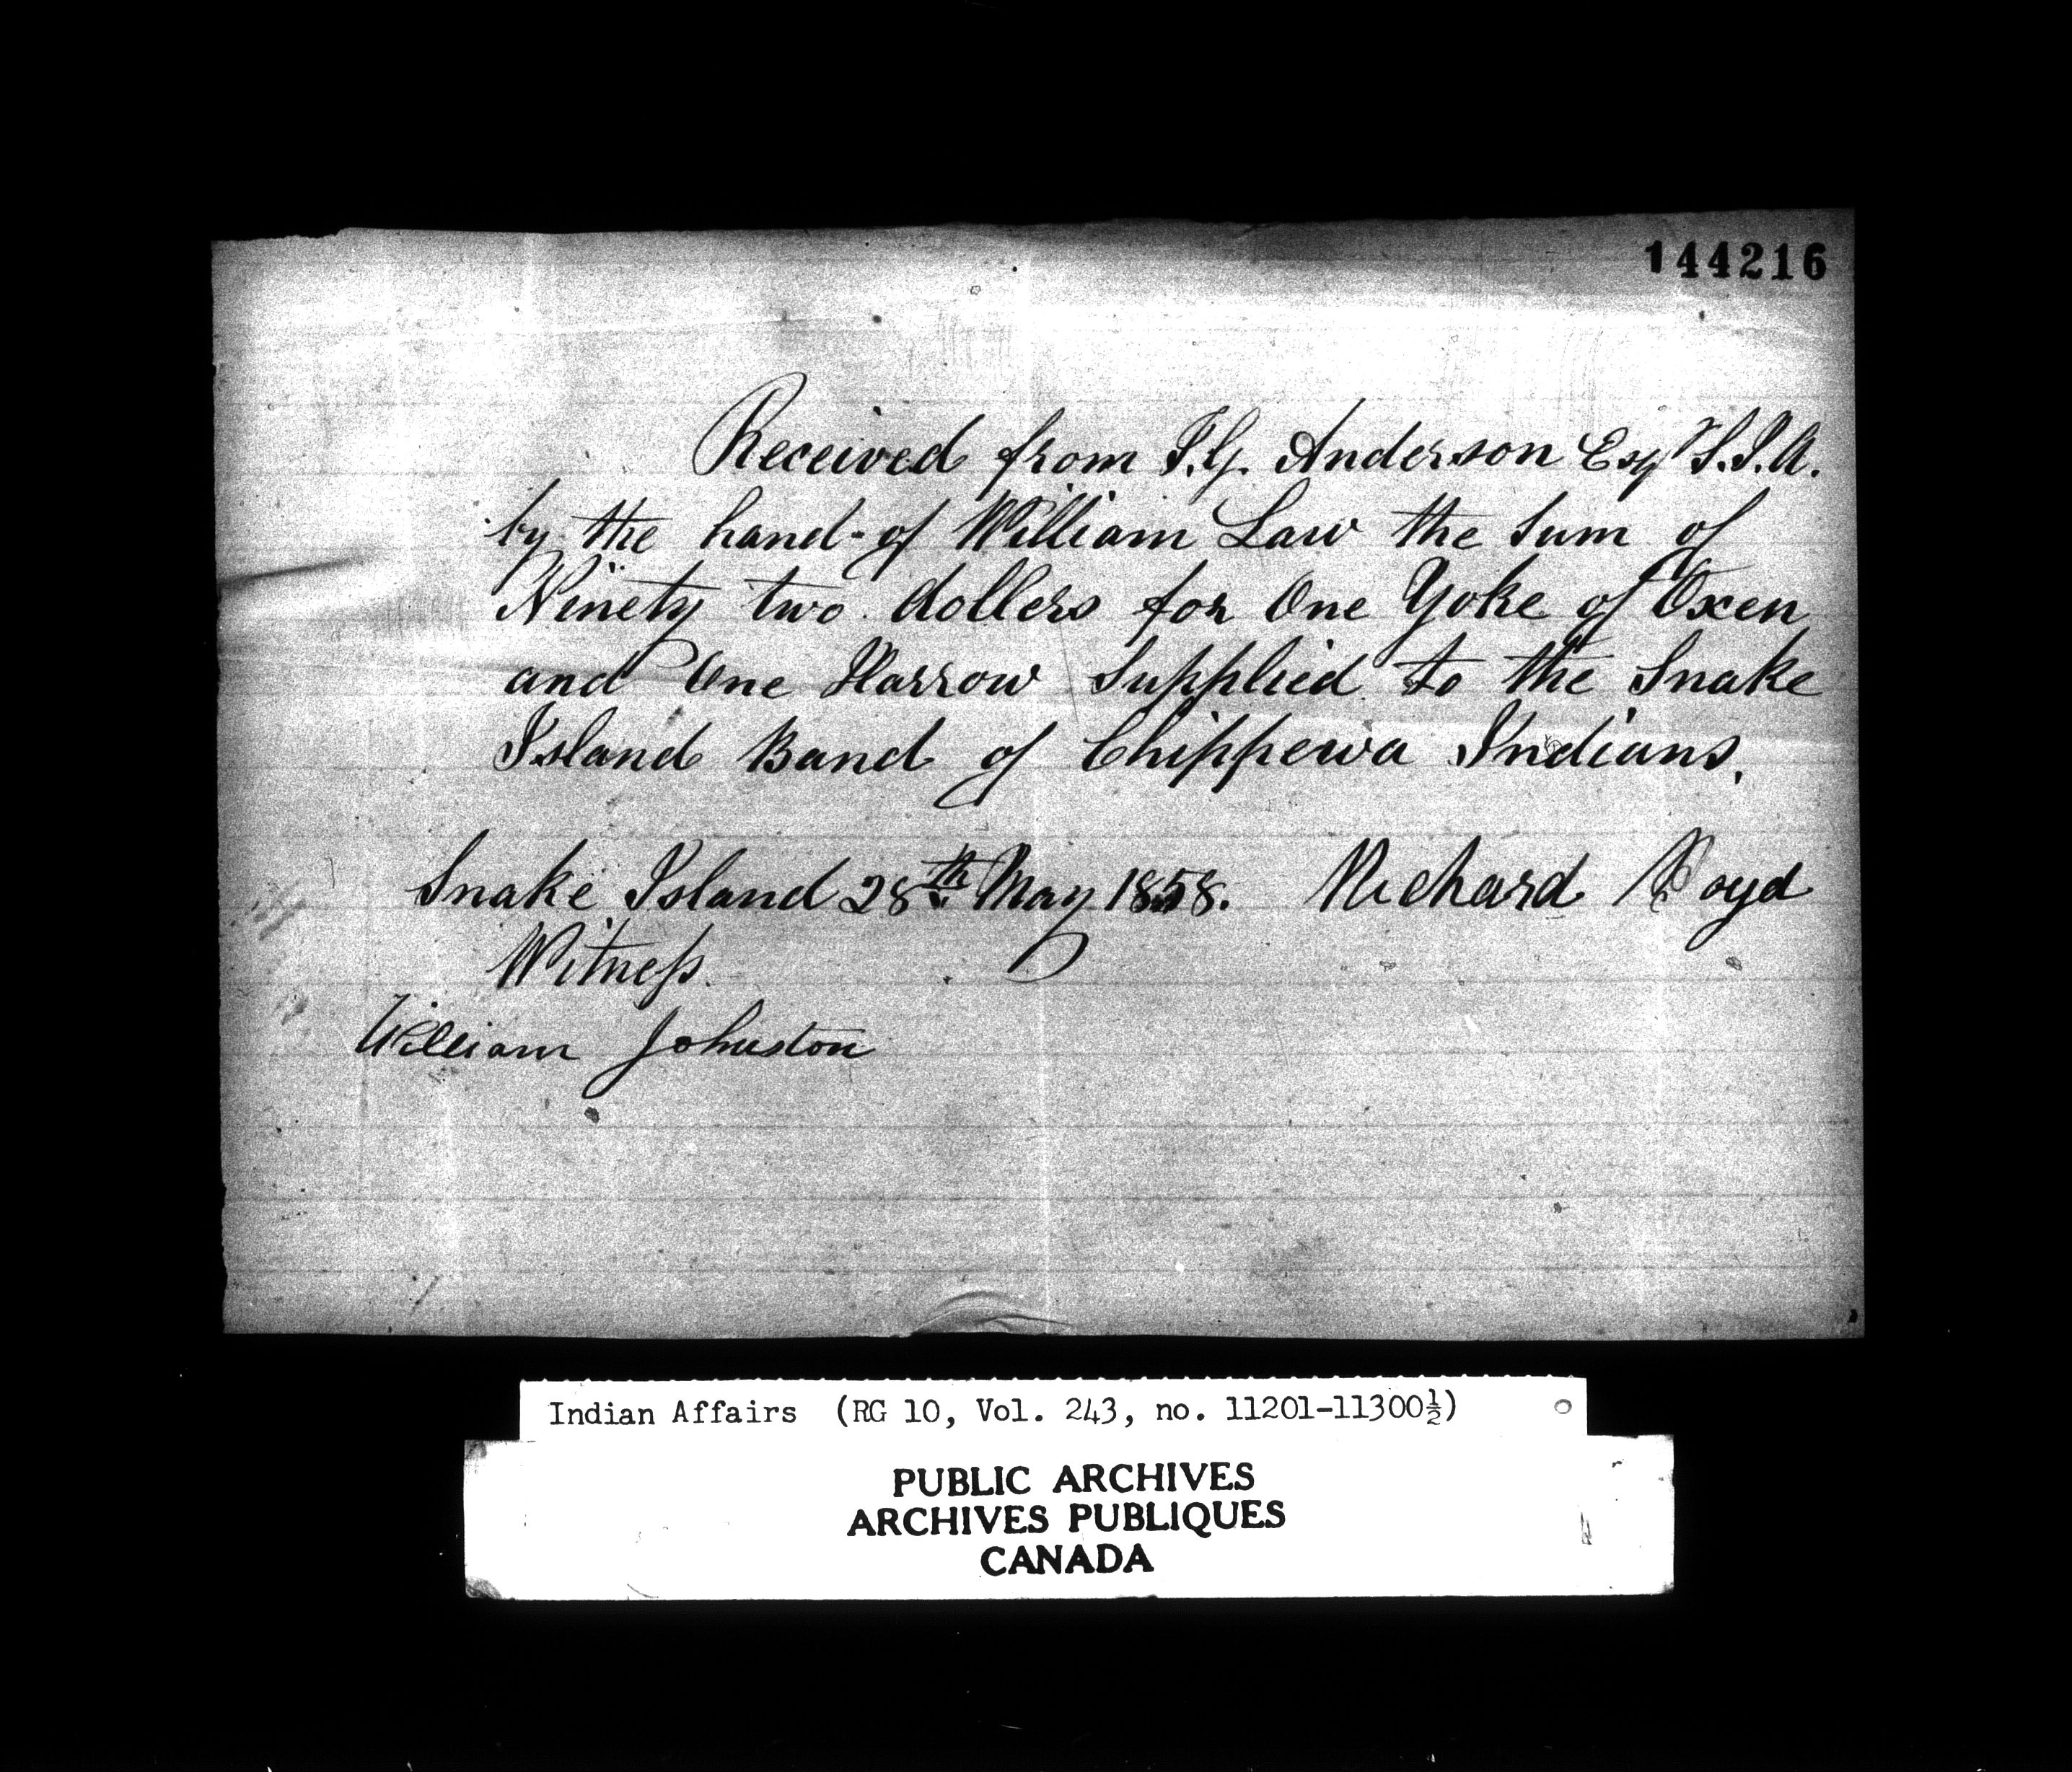 144216
Received from T.G. Anderson Esqr S.I.A.
by the hand of William Law the Sum of
Ninety two dollers for One Yoke of Oxen
and One Harrow Supplied to the Snake
Island Band of Chippewa Indians.
Snake Island 28th May 1858. Richard Boyd
Witness.
William Johnston
Indian Affairs (RG 10, Vol. 243, no. 11201-11300½)
PUBLIC ARCHIVES
ARCHIVES PUBLIQUES
CANADA